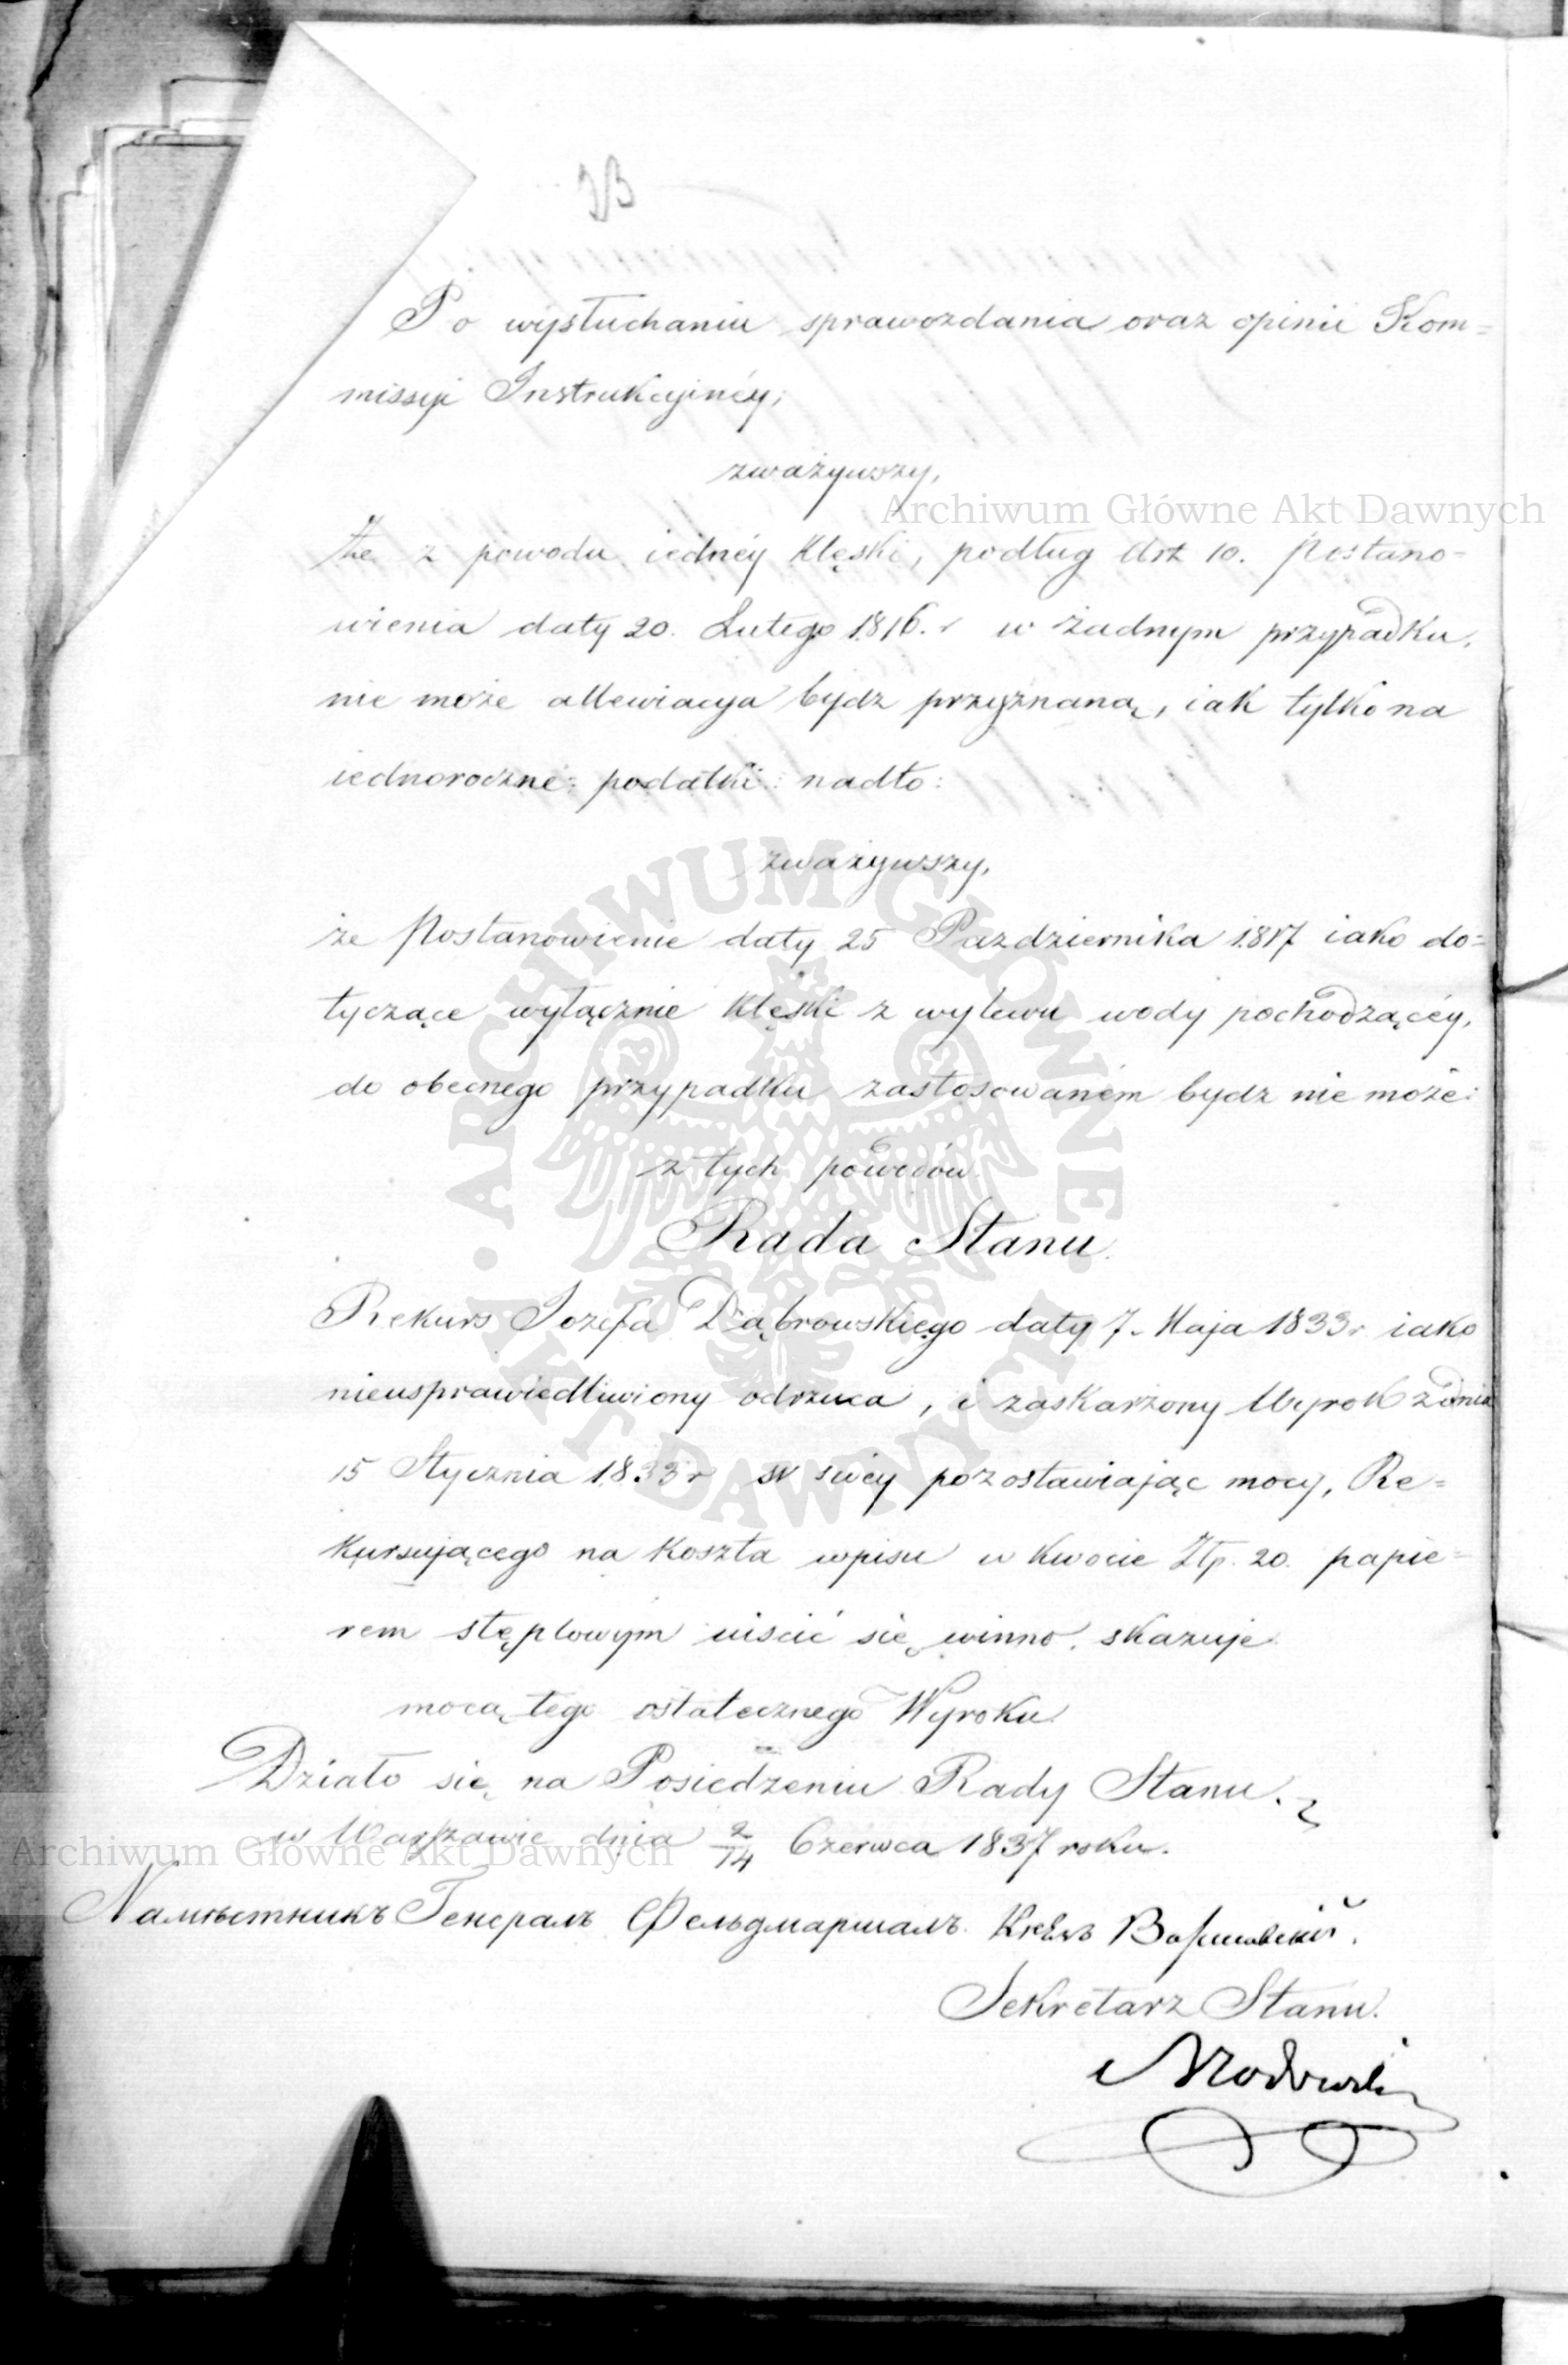 Po wysłuchaniu sprawozdania oraz opinii Kom=
missyi Instrukcyinéy;
zważywszy,
Archiwum Główne Akt Dawnych
Że z powodu iednéy klęski, podług Art 10. Postano=
wienia daty 20. Lutego 1816. r w żadnym przypadku,
nie może allewiacya bydz przyznaną, iak tylko na
iednoroczne podatki: nadto:
zważywszy,
że Postanowienie daty 25 Pazdziernika 1817 iako do=
tyczące wyłącznie klęski z wylewu wody pochodzącéy,
do obecnego przypadku zastosowaném bydz nie może:
z tych powodów
Rada Stanu.
Rekurs Jozefa Dąbrowskiego daty 7. Maja 1833 r iako
nieusprawiedliwiony odrzuca, i zaskarżony Wyrok z dnia
15 Stycznia 1833 r w swéy pozostawiając mocy, Re=
kursującego na koszta wpisu w kwocie Złp. 20. papie=
rem stęplowym uiścić się winno, skazuje
mocą tego ostatecznego Wyroku.
Działo się na Posiedzeniu Rady Stanu.
w Warszawie dnia 2/14 Czerwca 1837 roku.
Archiwum Główne Akt Dawnych
Намѣстникъ Генералъ Фельдмаршалъ Князь Варшавскій.
Sekretarz Stanu.
ARCHIWUM GŁÓWNE AKT DAWNYCH